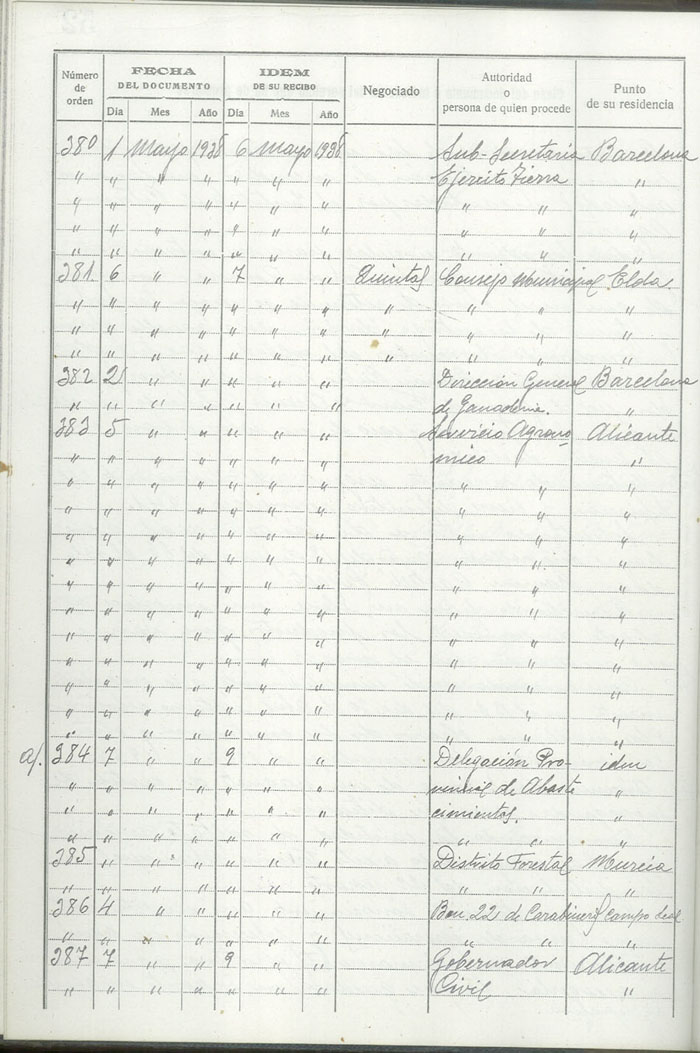 Número de orden FECHA DEL DOCUMENTO Día Mes Año IDEM DE SU RECIBO Día Mes Año Negociado Autoridad o persona de quien procede Punto de su residencia
380 1 Mayo 1938 6 Mayo 1938 Sub-Secretaria Barcelona
" " " " " " " Ejercito Tierra "
" " " " " " " " " "
" " " " " " " " " "
" " " " " " " " " "
381 6 " " 7 " " Quintas Consejo Municipal Elda.
" " " " " " " " " " "
" " " " " " " " " " "
" " " " " " " " " " "
382 2 " " " " " Dirección General Barcelona
" " " " " " " de Ganaderia. "
383 5 " " " " " Servicio Agrono Alicante
" " " " " " " mico "
" " " " " " " " " "
" " " " " " " " " "
" " " " " " " " " "
" " " " " " " " " "
" " " " " " " " " "
" " " " " " " " " "
" " " " " " " " " "
" " " " " " " " " "
" " " " " " " " " "
" " " " " " " " " "
" " " " " " " " " "
a/. 384 7 " " 9 " " Delegación Pro- idem
" " " " " " " vincial de Abaste "
" " " " " " " cimientos. "
" " " " " " " " " "
385 " " " " " " Distrito Forestal Murcia
" " " " " " " " " "
386 4 " " " " " Bon. 22 de Carabineros
" " " " " " " " " "
387 7 " " 9 " " Gobernador Alicante
" " " " " " " Civil "